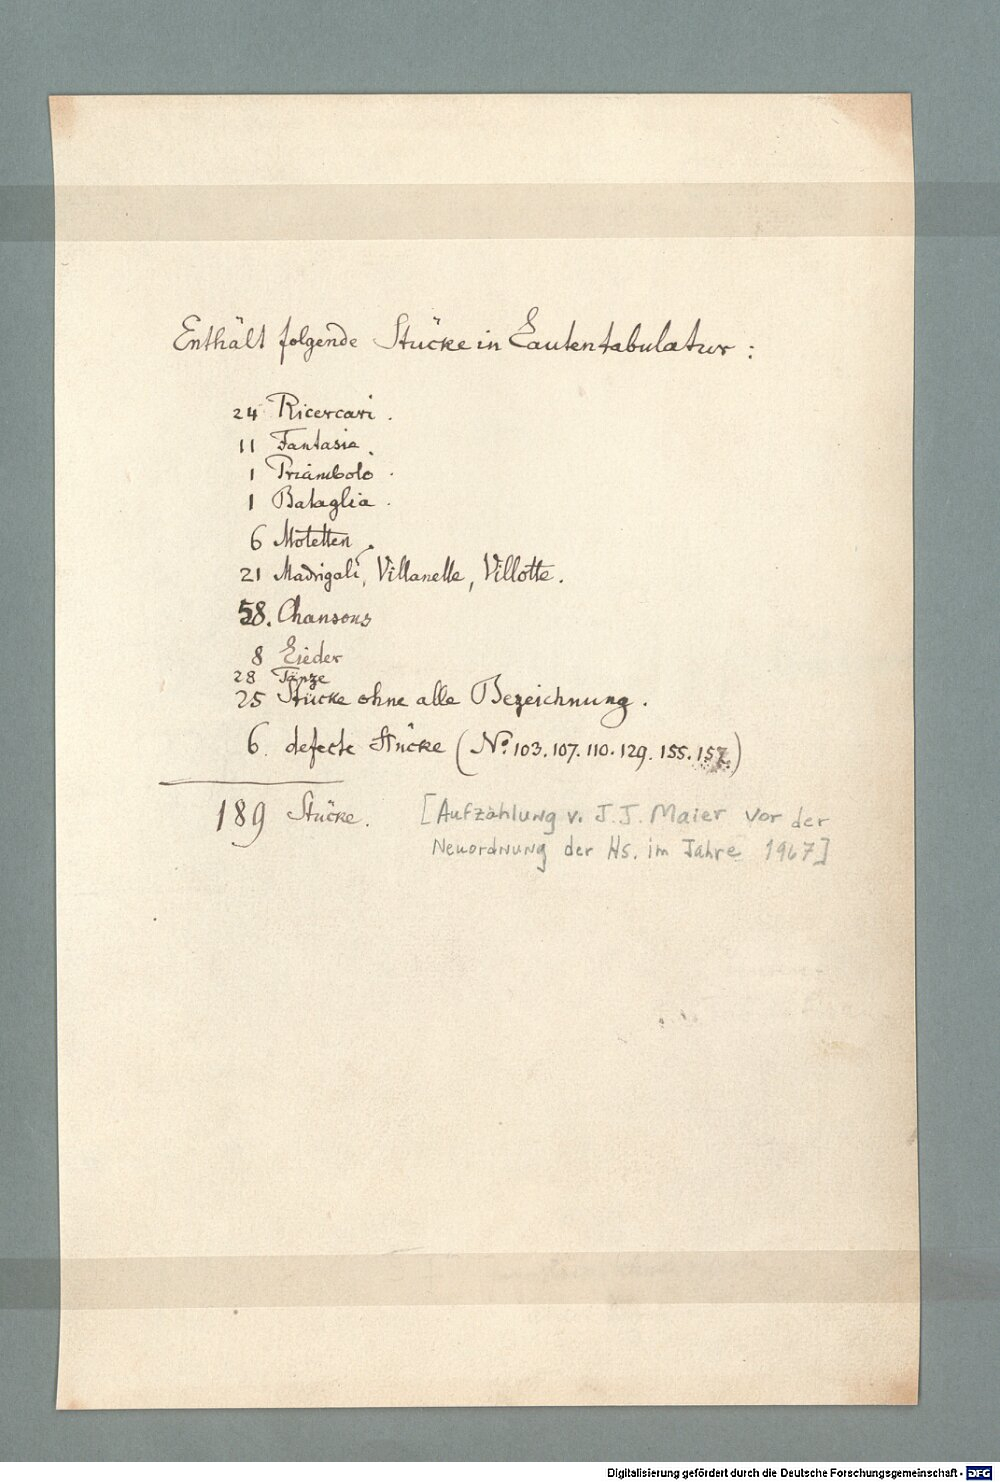 Enthält folgende Stücke in Lautentabulatur :
24 Ricercari .
11 Fantasie .
1 Priambolo .
1 Bataglia .
6 Motetten .
21 Madrigali, Villanelle, Villotte .
58. Chansons
8 Lieder
28 Tänze
25 Stücke ohne alle Bezeichnung .
6. defecte Stücke (No. 103. 107. 110. 129. 155. 157.)
189 Stücke.
[Aufzählung v. J. J. Maier vor der
Neuordnung der Hs. im Jahre 1967]
Digitalisierung gefördert durch die Deutsche Forschungsgemeinschaft - DFG